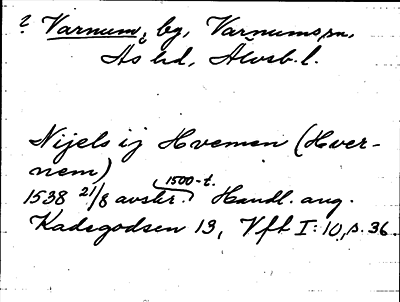 ? Varnum, by, Varnums sn,
Ås hd, Älvsb. l.
Nijels ij Hvemen (Hver-
nem)
1500-t.
1538 21/8 avskr. Handl. ang.
Kadsgodsen 13, Vfl I:10, s. 36.